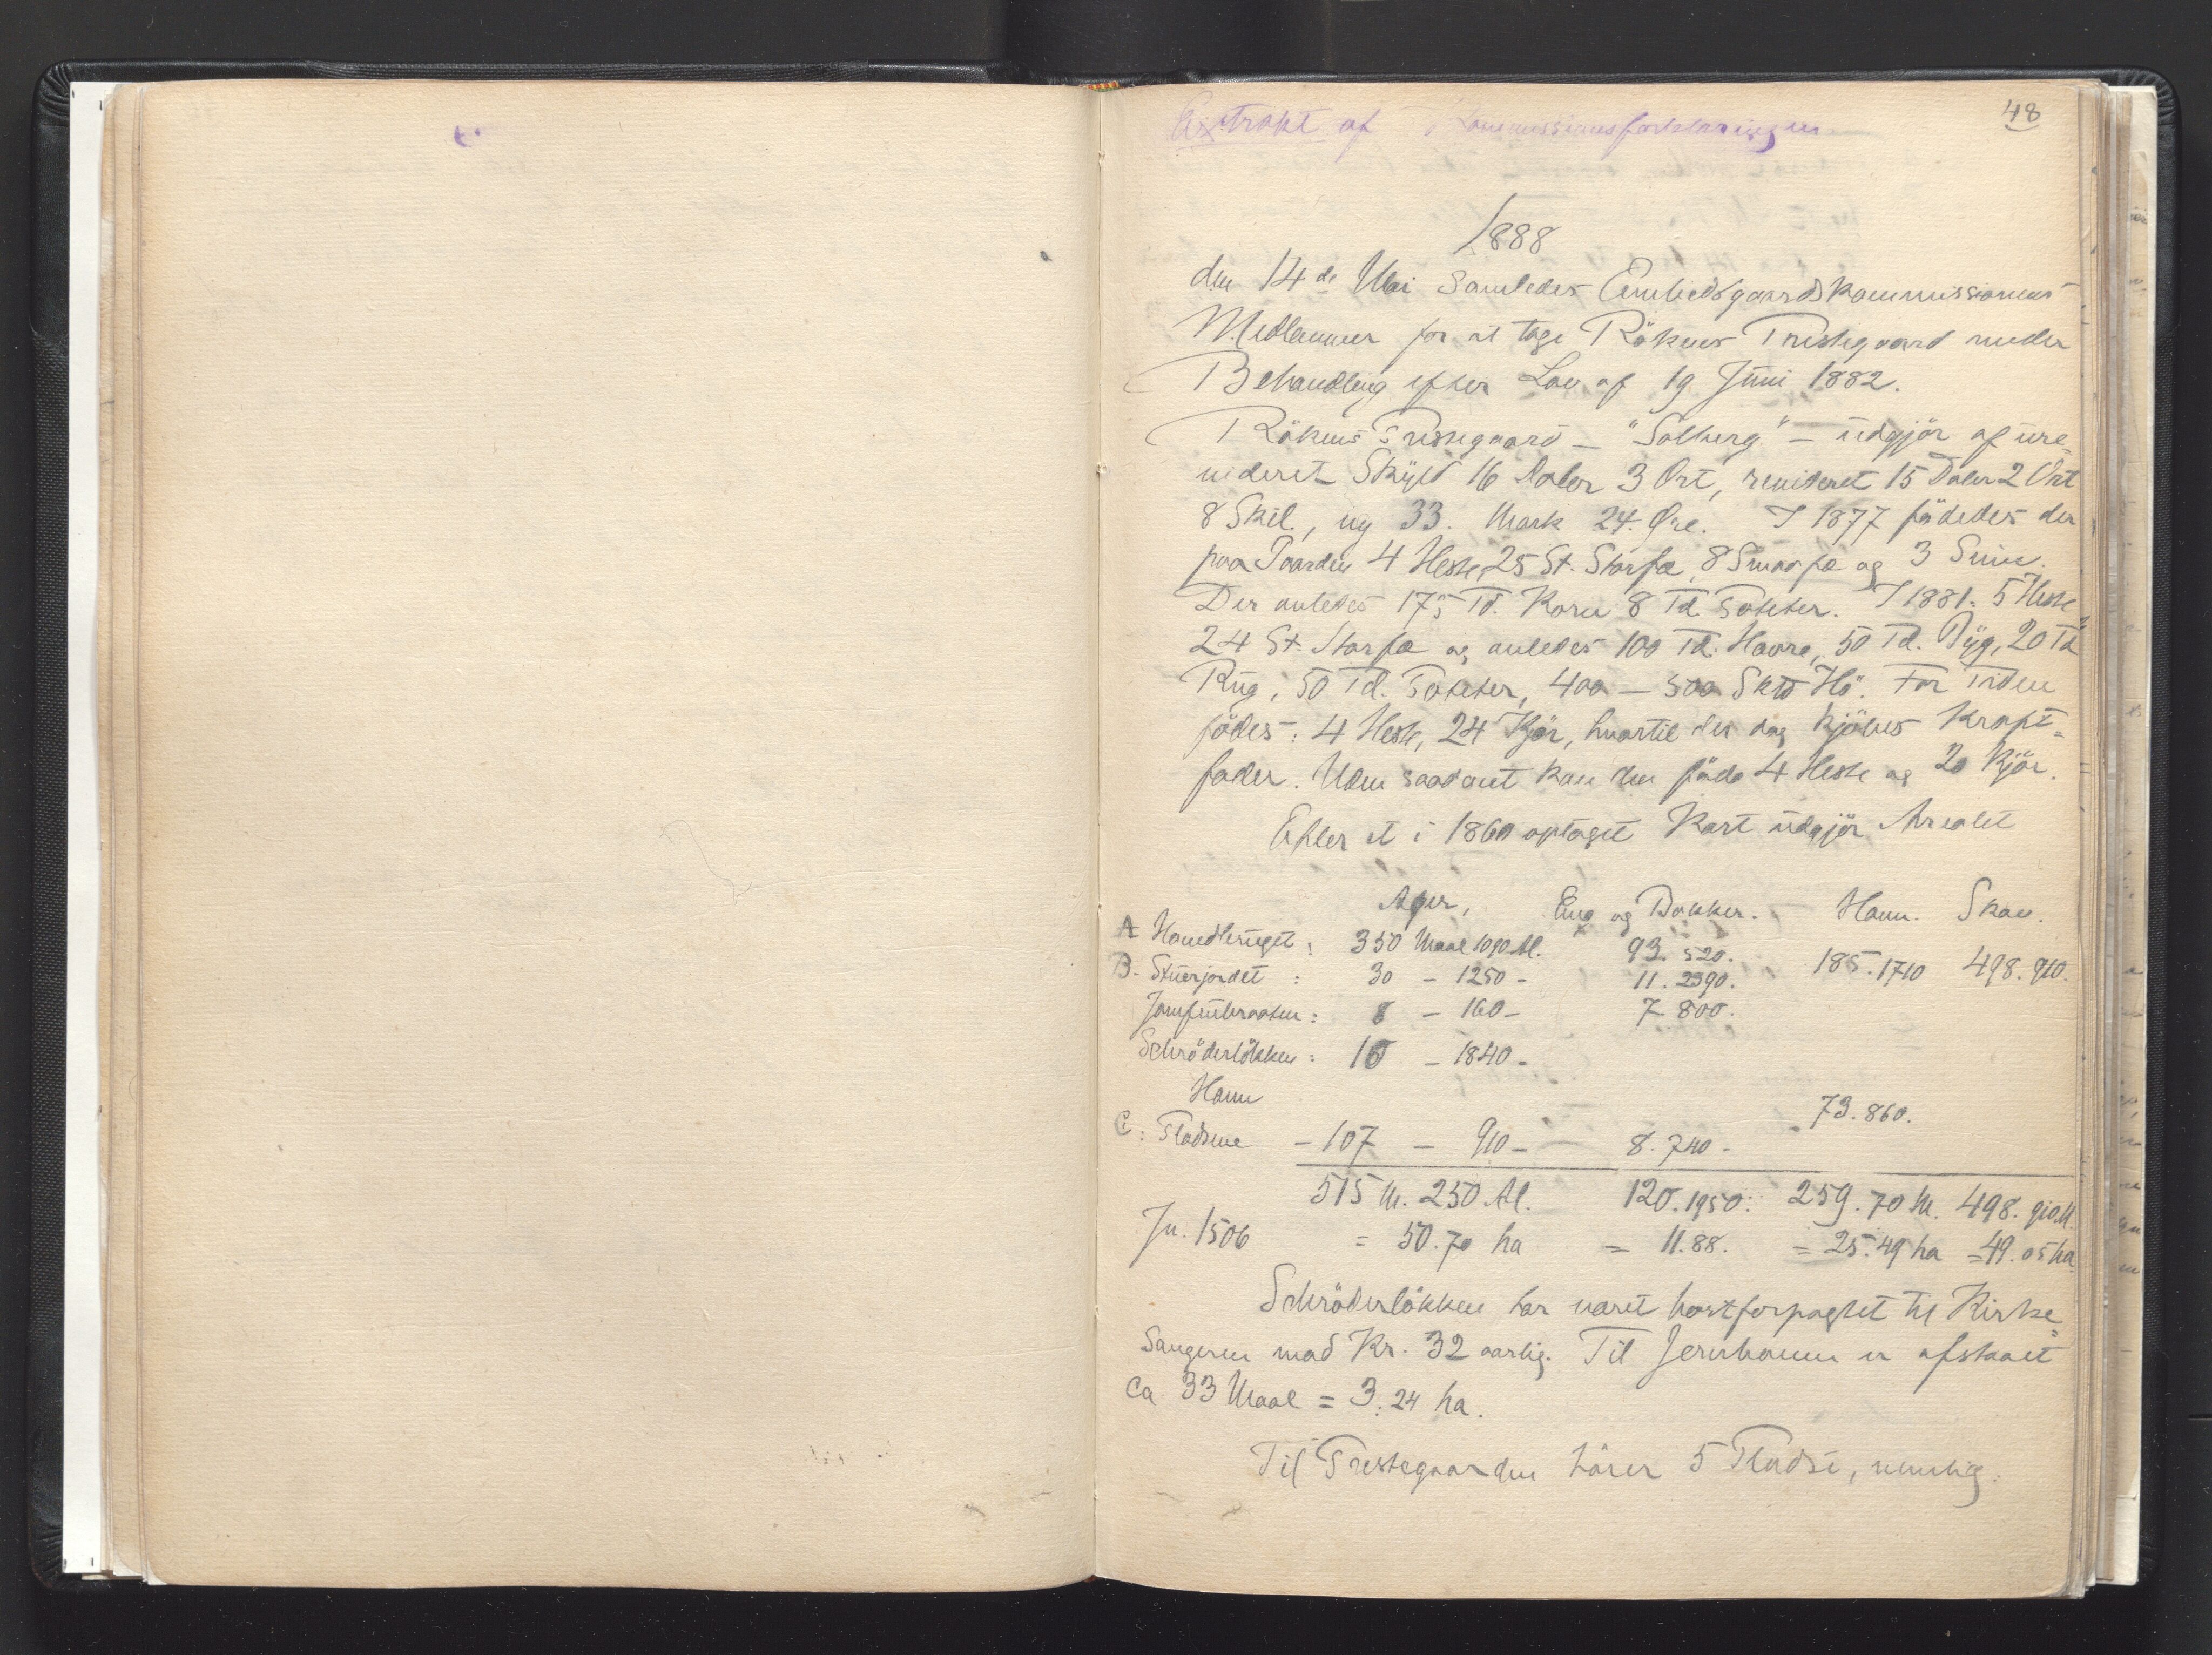 48
Extrakt af Kommissionsforklaringen
1888
den 14de Mai samledes Embedsgaardskommissionens
Medlemmer for at tage Rökens Prestegaard under
Behandling efter Lov af 19 Juni 1882.
Rökens Prestegaard – "Solberg" – udgjör af ure
videret Skyld 16 Daler 3 Ort, revideret 15 Daler 2 Ort
8 Skil., ny 33. Mark 24. Øre. I 1877 födedes der
paa Gaarden 4 Heste, 25 St. Storfæ, 8 Smaafæ og 3 Sviin.
Der avledes 175 Td. Korn 8 Td Poteter. I 1881: 5 Heste
24 St. Storfæ og avledes 100 Td. Havre, 50 Td. Byg, 20 Td
Rug, 50 Td. Poteter, 400 – 500 Sktd Hö. For Tiden
födes: 4 Heste, 24 Kjör, hvortil der dog kjöbes Kraft=
foder. Uden saadant kan der föde 4 Heste og 20 Kjör.
Efter et i 1860 optaget Kart udgjör Arealet
Ager, Eng og Bakker. Havn. Skov.
A Hovedbruget: 350 Maal 1090 Al. 93. 520. 185.1710 498. 910.
B. Stuerjordet: 30 – 1250 – 11. 2390.
Jomfrubraaten: 8 – 160 – 7 800.
Schröderlökken: 18 – 1840 –
Havn 73. 860.
C: Pladsene – 107 – 910 – 8. 740 –
515 M. 250 Al. 120. 1950. 259. 70 M. 498. 910 Al.
Jn. 1506 = 50.70 ha = 11.88. = 25.49 ha = 49.05 ha
Schröderlökken har været bortforpagtet til Kirke=
sangeren mod Kr. 32 aarlig. Til Jernbanen er afstaaet
Ca 33 Maal = 3.24 ha.
Til Prestegaarden hörer 5 Pladse, nemlig: